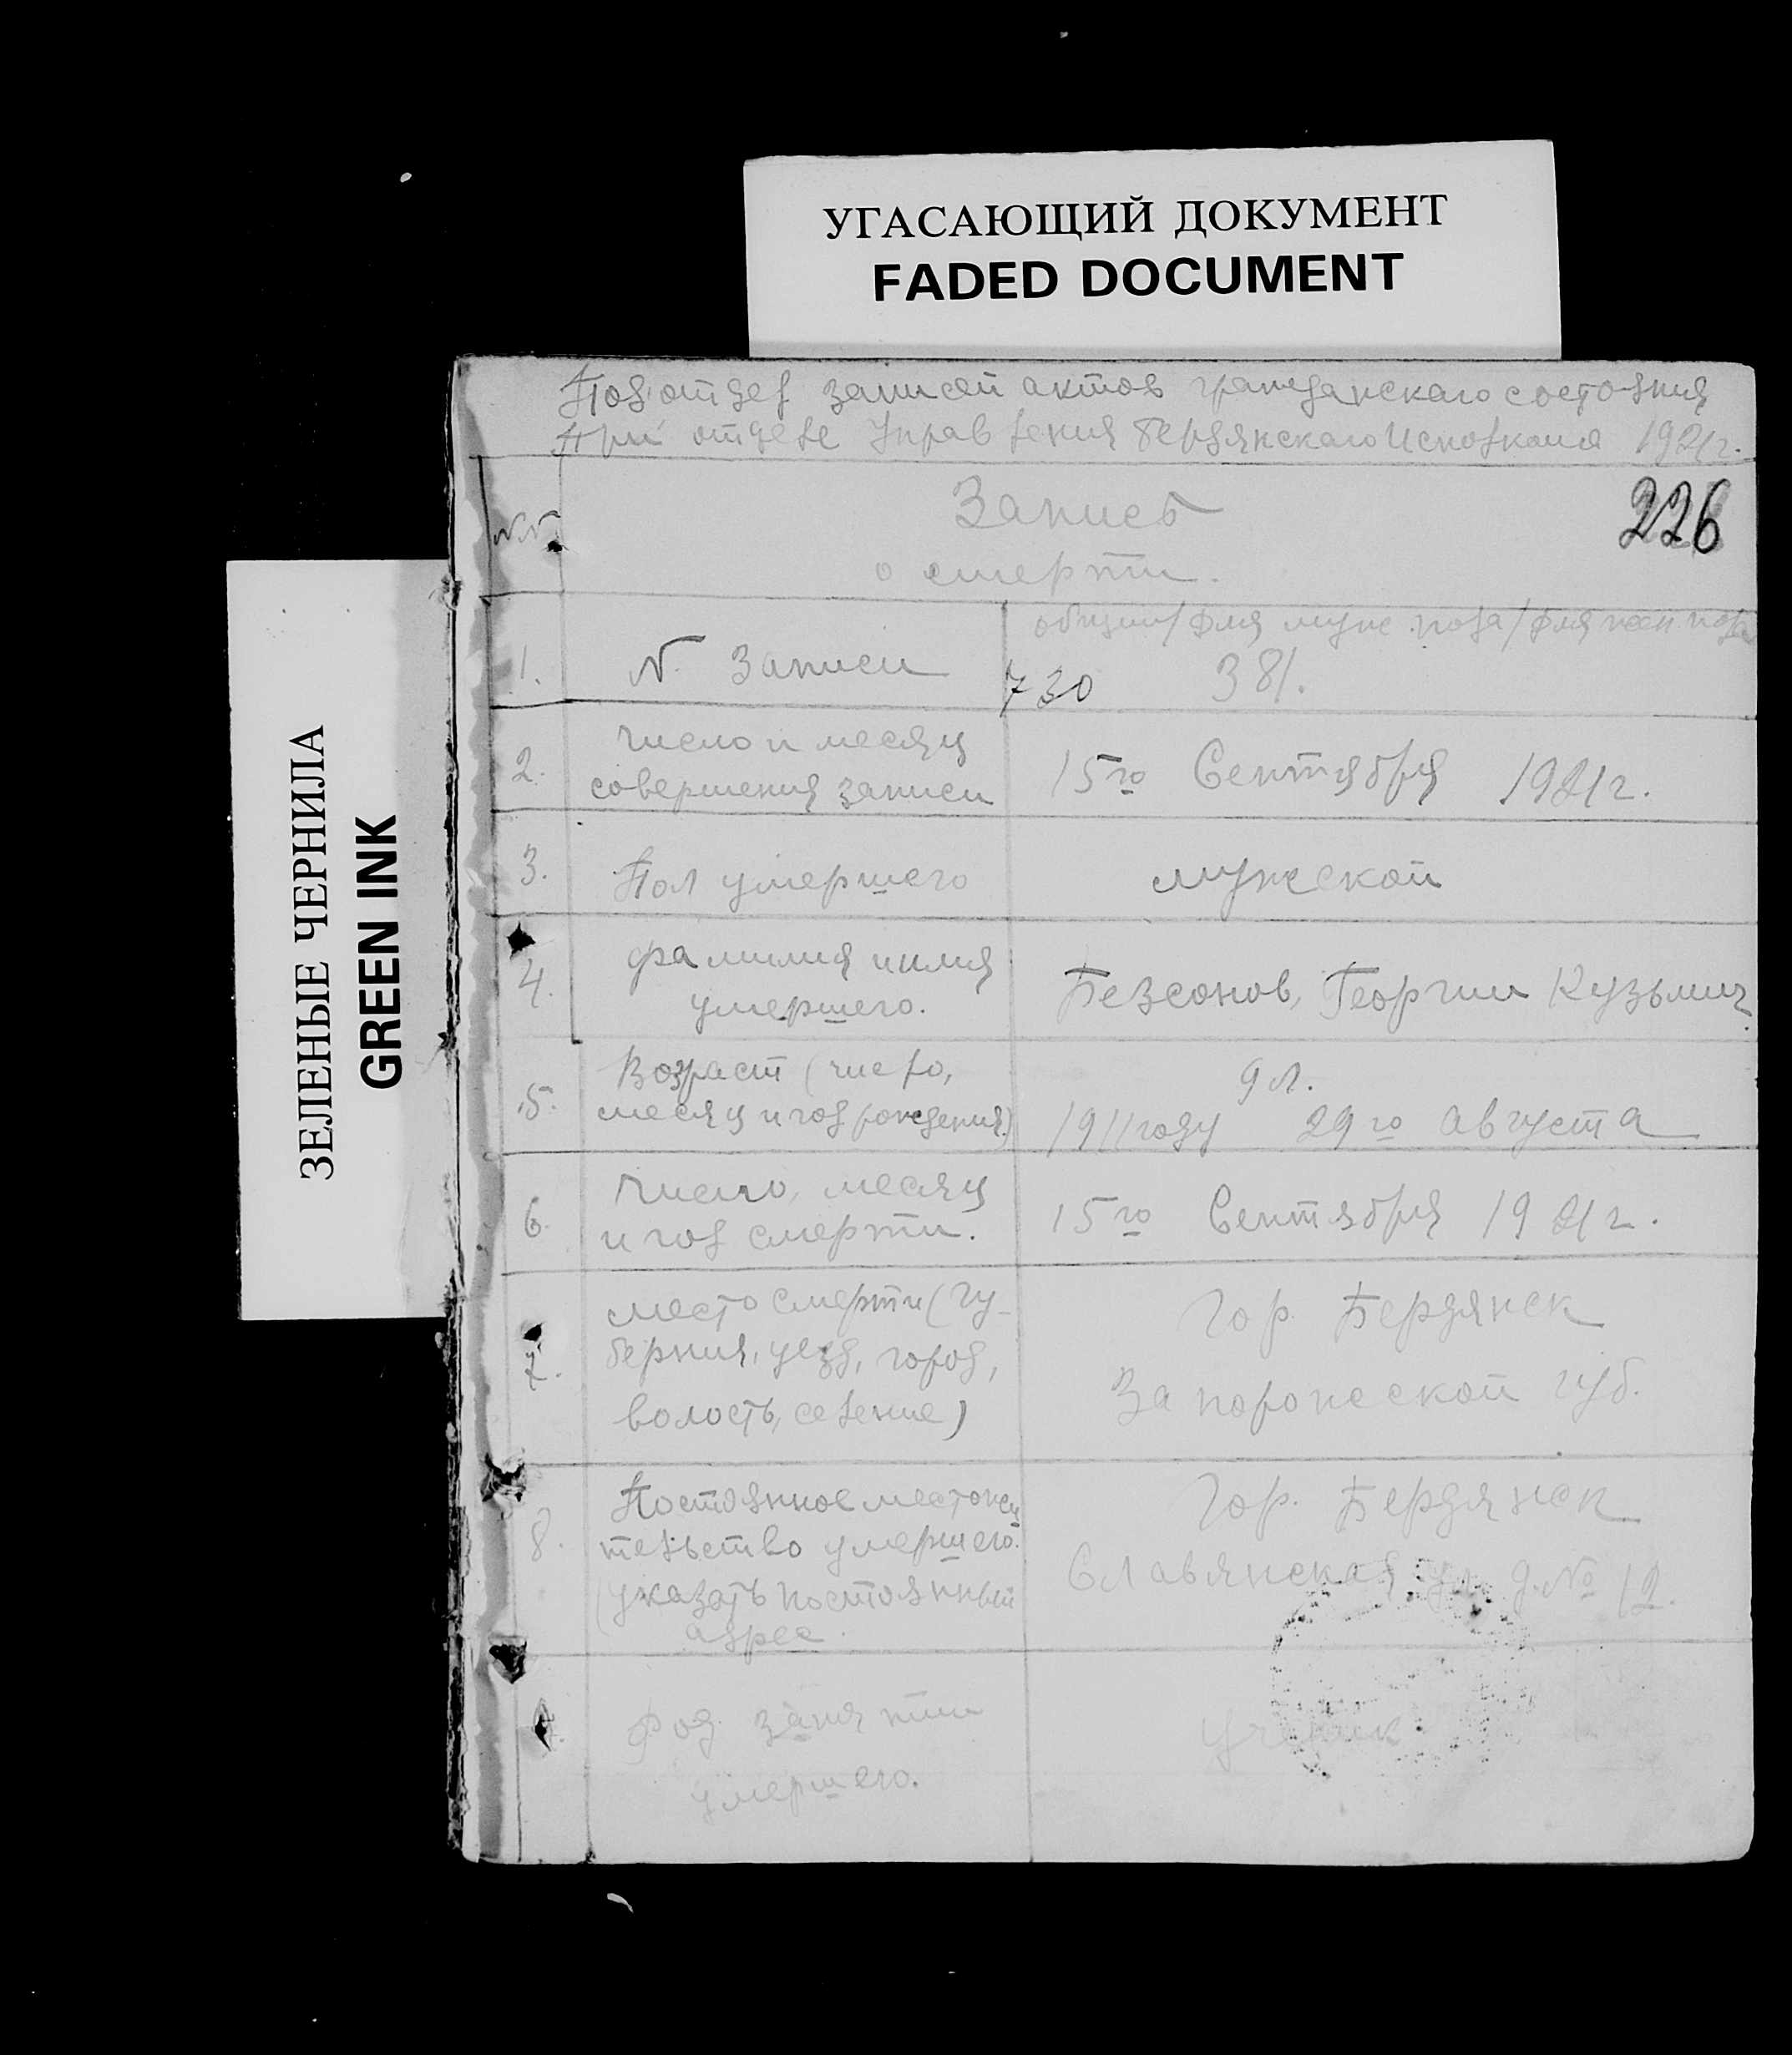 УГАСАЮЩИЙ ДОКУМЕНТ
FADED DOCUMENT
ЗЕЛЕНЫЕ ЧЕРНИЛА
GREEN INK
Подотдел записей актов гражданскаго состояния
При отделе Управления Бердянскаго Исполкома 1921г.
226
NN
Запись
о смерти.
общий/для мужс. пола/для жен пола
1. N. Записи 730 381.
2. Число и месяц
совершения записи 15го Сентября 1921г.
3. Пол умершего мужской
4. Фамилия и имя
умершего. Безсонов, Георгий Кузьмич
5. Возраст (число, 9 л.
месяц и год рождения) 1911 году 29го Августа
6. Число, месяц
и год смерти. 15го Сентября 1921г.
7. Место смерти (гу-
берния, уезд, город,
волость, селение)
Гор. Бердянск
Запорожской губ.
8. Постоянное местожи
тельство умершего.
(указать постоянный
адрес.
Гор. Бердянск
Славянская ул. д. № 12.
9. Род занятий
умершего.
ученик